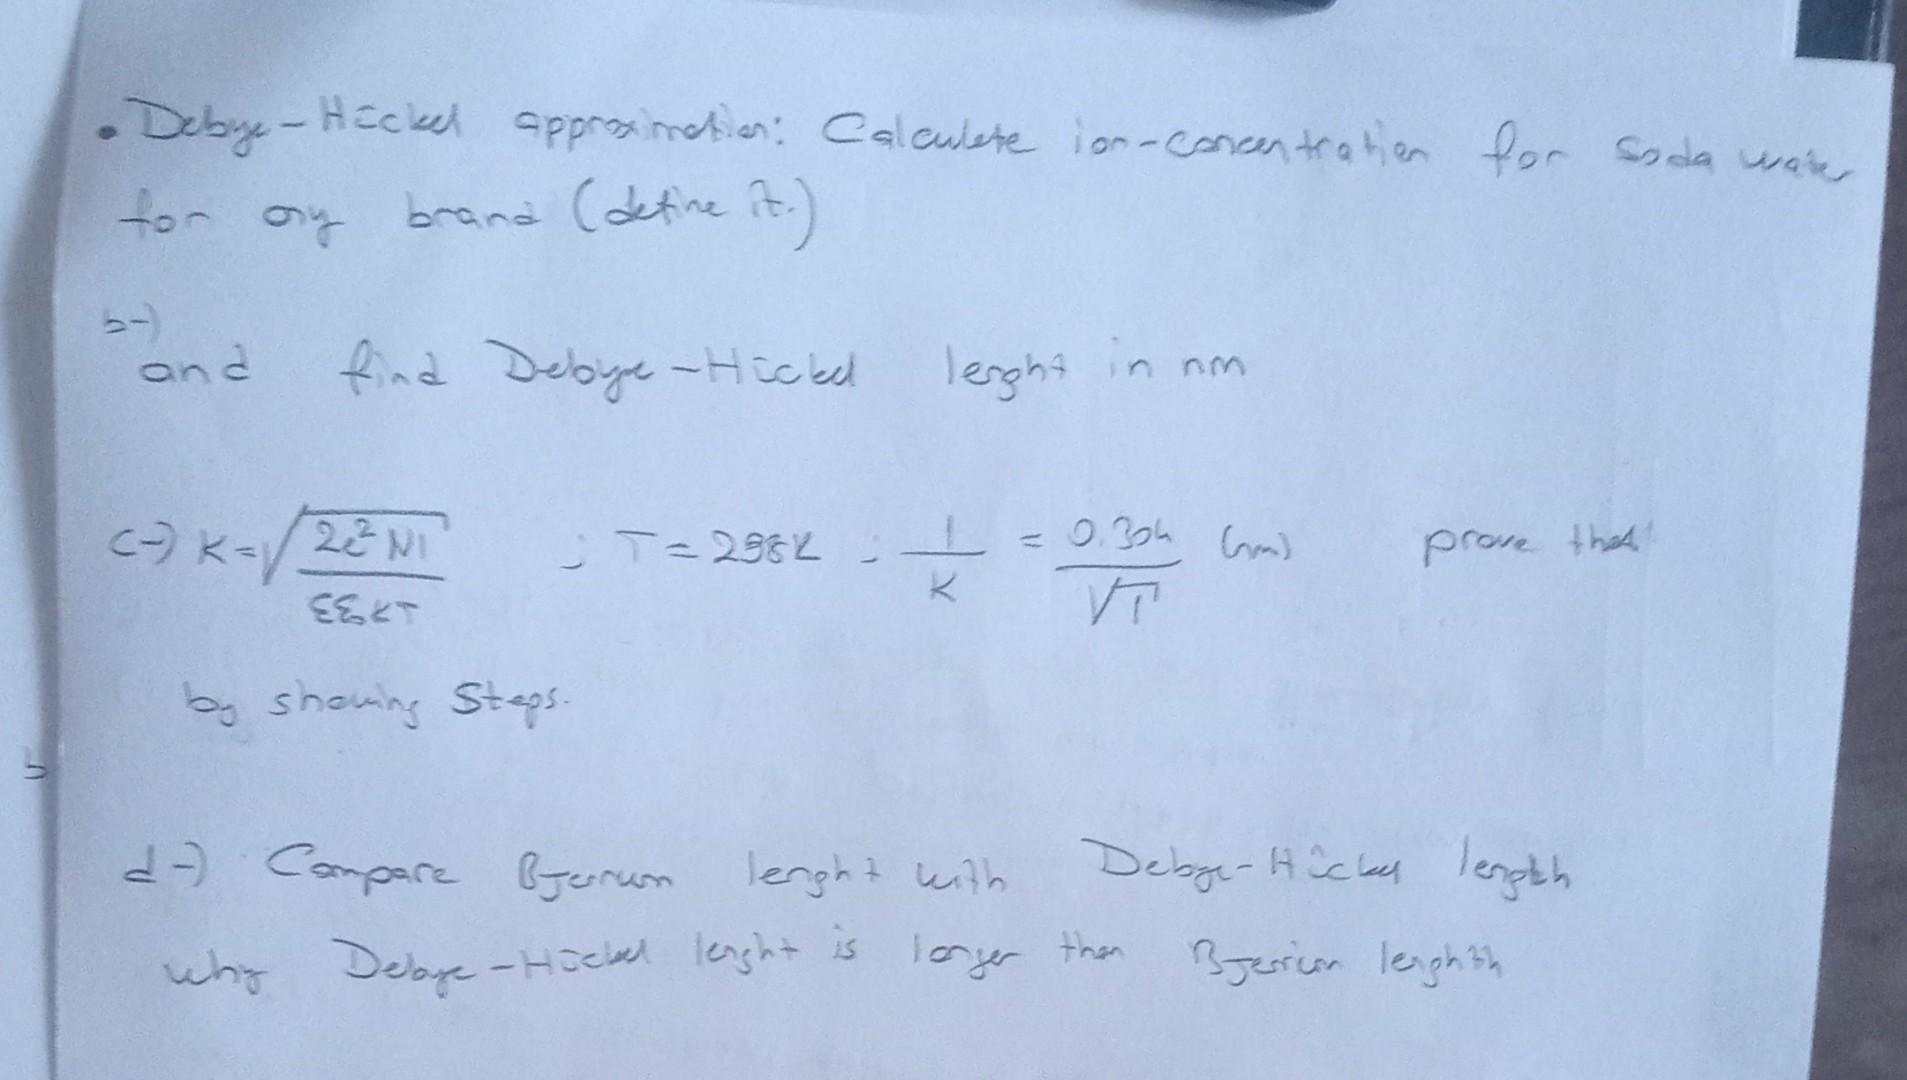 • Debye-Hückel approximation: Calculate ion-concentration for soda water
for any brand (define it.)
b-)
and find Debye-Hückel lenght in nm
c-) K=√(2e² NI / εε₀kT) ; T=298K ; 1/K = 0.304/√I (nm) prove that
by showing Steps.
d-) Compare Bjerrum lenght with Debye-Hückel length
why Debye-Hückel lenght is longer then Bjerrum lenghth